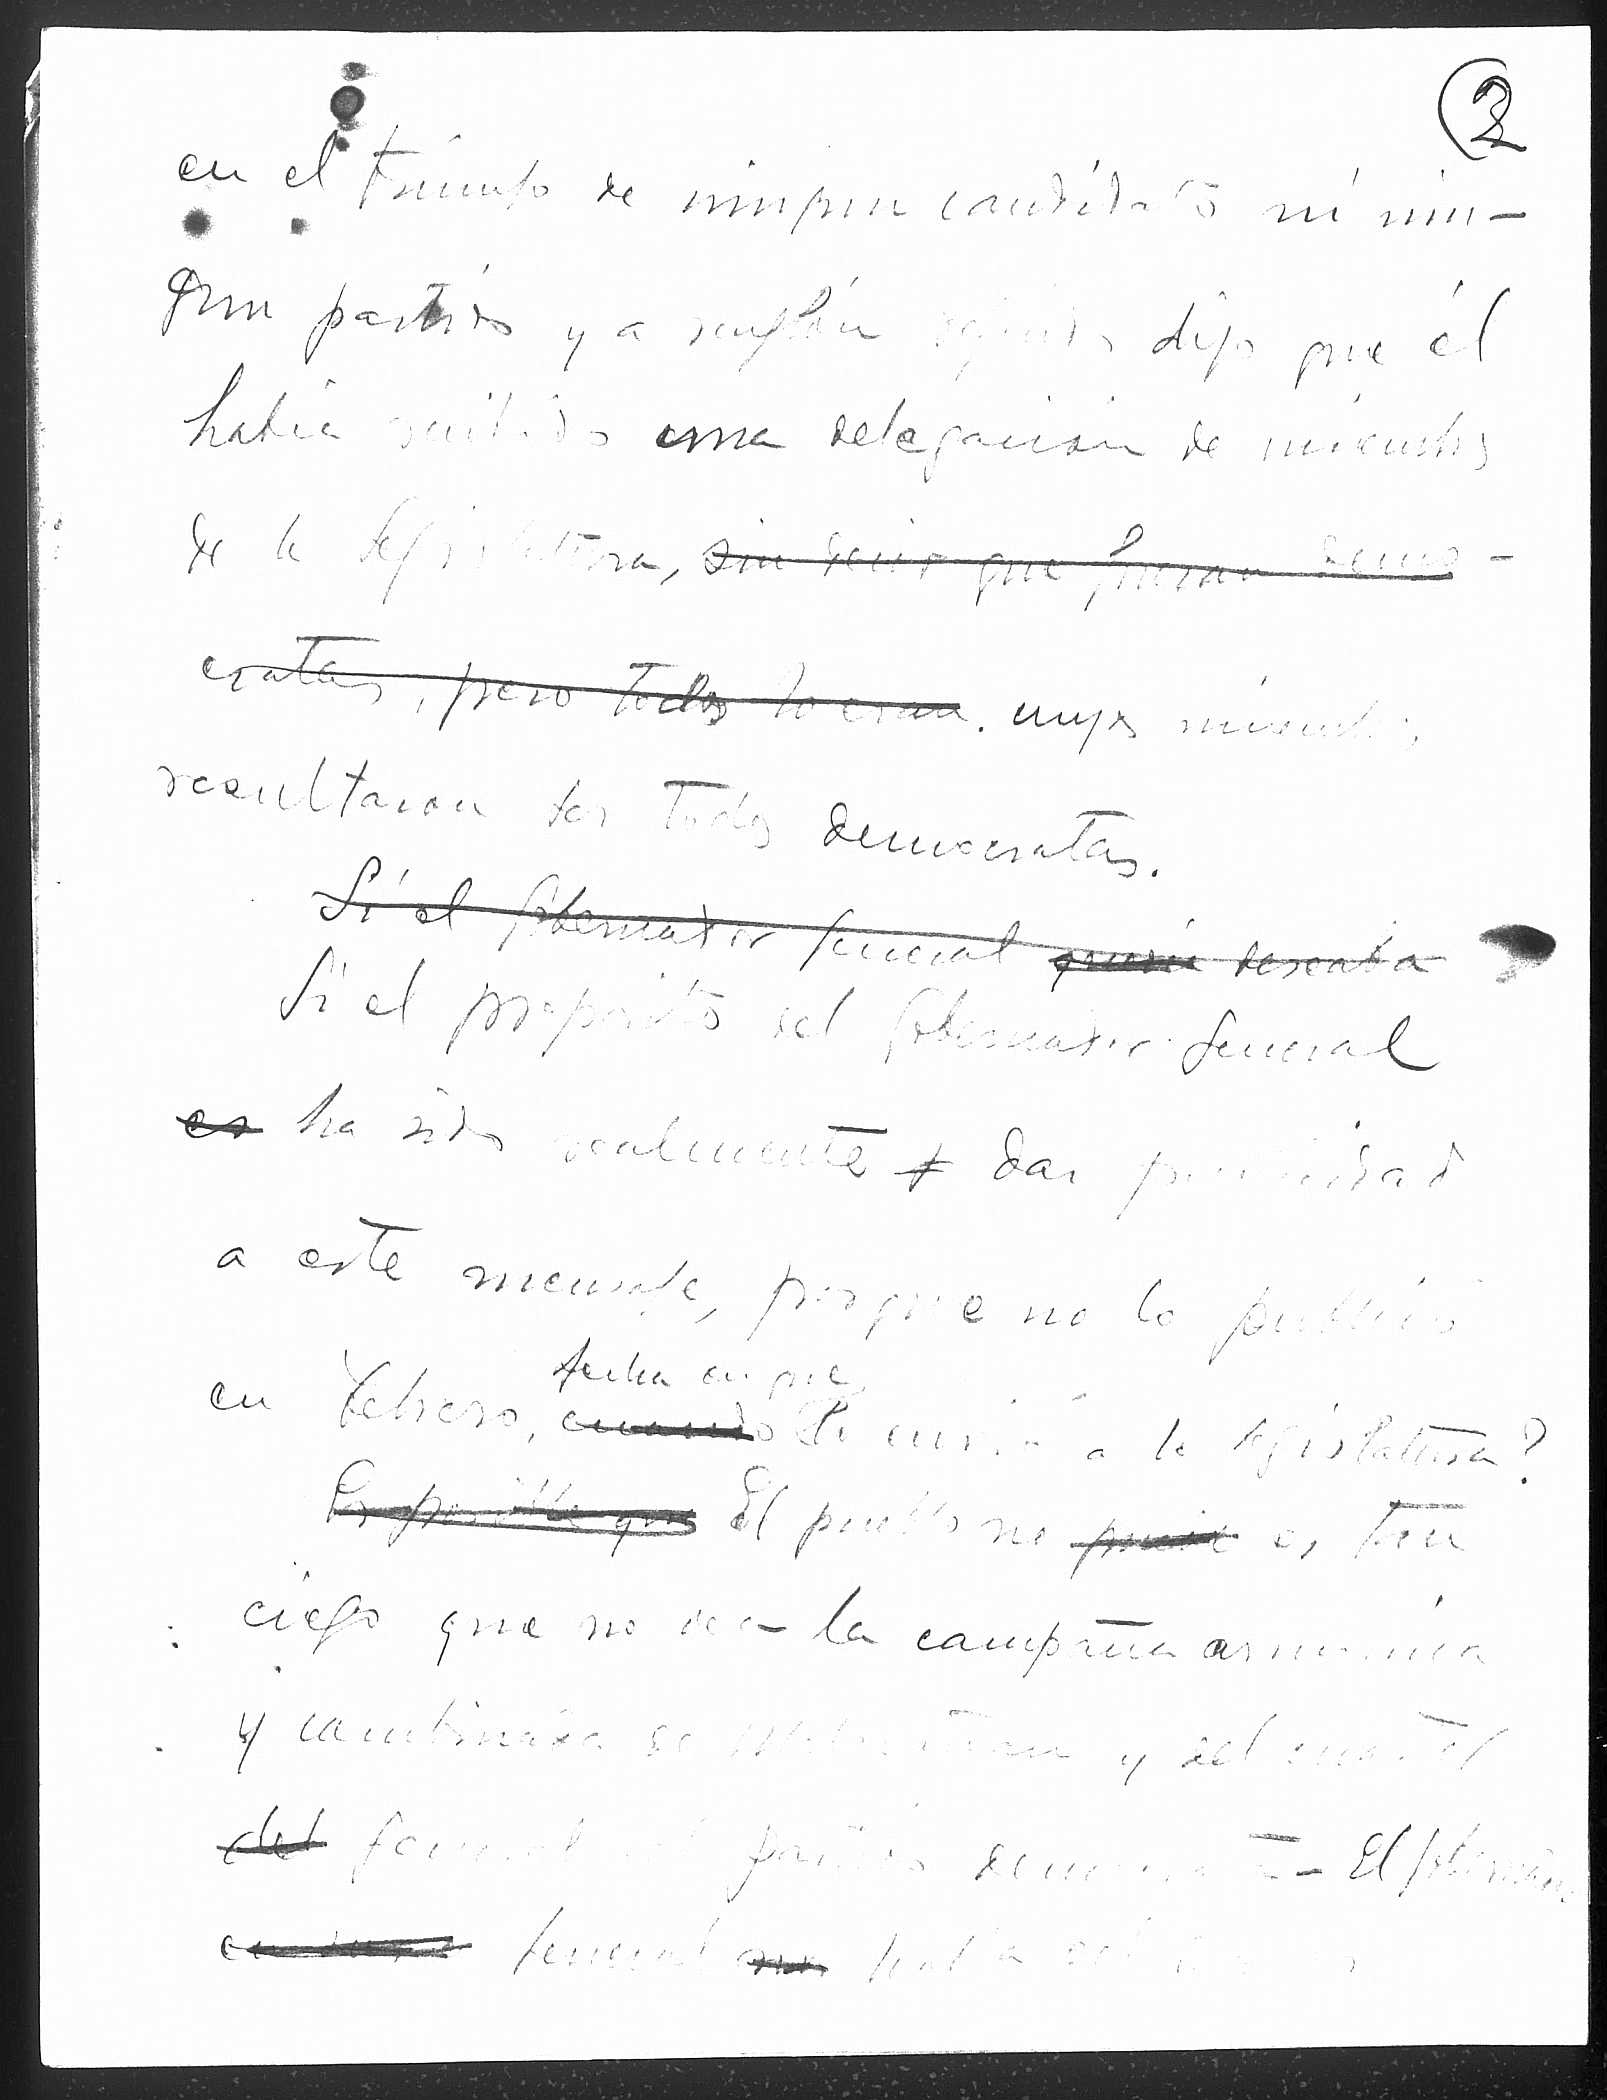 2
en el triunfo de ningun candidato ni nin-
gun partido y a renglón seguido dijo que él
había recibido una delegación de miembros
de la legislatura, sin decir que fueran demo-
cratas, pero todos lo eran. cuyos miembros
resultaron ser todos democratas.
Si el Gobernador General queria deseaba
Si el proposito del Gobernador General
es ha sido realmente dar publicidad
a este mensaje, porque no lo publicó
fecha en que
en Febrero, cuando lo envió a la legislatura?
Es posible que El pueblo no puede es tan
ciego que no vea la campaña
y combinada de y del cuartel
del general del partido democrata - El
General no habla